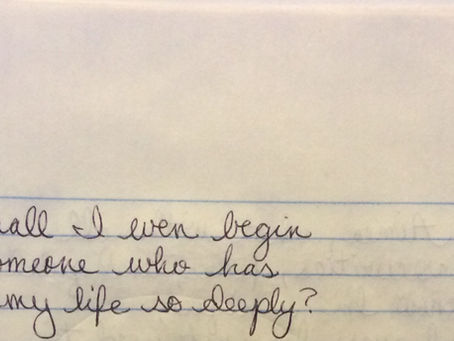 all I even begin
omeone who has
my life so deeply?